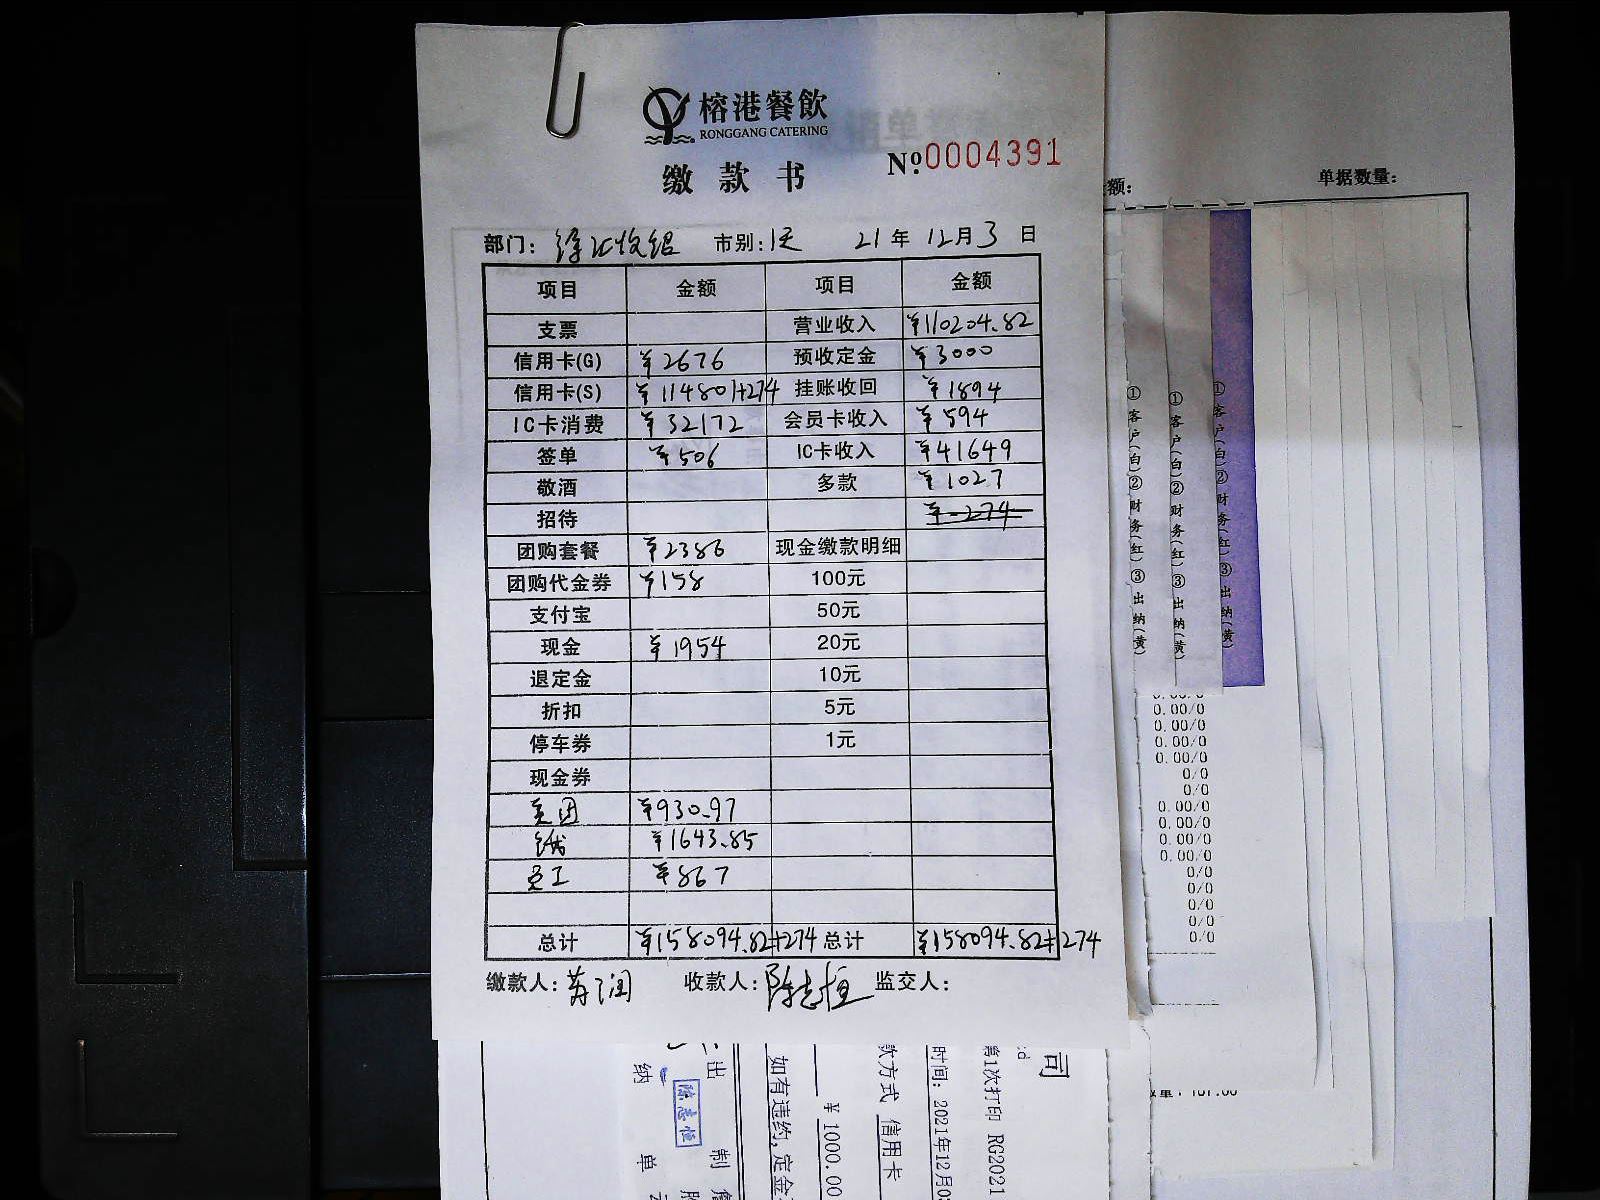 榕港餐飲
RONGGANG CATERING
缴款书
Nº.0004391
额:
单据数量:
部门: 市别: 21年12月3日
项目 金额 项目 金额
支票 营业收入 ¥110204.82
信用卡(G) ¥2676 预收定金 ¥3000
信用卡(S) ¥114801+274 挂账收回 ¥1894
IC卡消费 ¥32172 会员卡收入 ¥594
签单 ¥506 IC卡收入 ¥41649
敬酒 多款 ¥1027
招待 ¥-274
团购套餐 ¥2386 现金缴款明细
团购代金券 ¥158 100元
支付宝 50元
现金 ¥1954 20元
退定金 10元
折扣 5元
停车券 1元
现金券
美团 ¥930.97
¥1643.85
员工 ¥867
总计 ¥158094.82+274 总计 ¥158094.82+274
缴款人: 收款人:陈志恒 监交人:
①客户(白)②财务(红)③出纳(黄)
①客户(白)②财务(红)③出纳(黄)
①客户(白)②财务(红)③出纳(黄)
0.00/0
0.00/0
0.00/0
0.00/0
0.00/0
0/0
0/0
0.00/0
0.00/0
0.00/0
0.00/0
0/0
0/0
0/0
0/0
0/0
司
第1次打印 RG2021
时间: 2021年12月0
款方式 信用卡
¥ 1000.00
如有违约,定金
出纳
陈志恒
制单